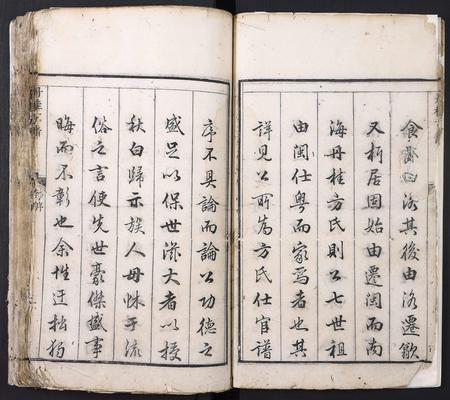 食齋曰洛其後由洛遷歙
又析居固始由遷閩而南
海丹桂方氏則公七世祖
由閩仕粵而家焉者也其
詳見公所為方氏仕官譜
序不具論而論公功德之
盛足以保世滋大者以授
秋白歸示族人毋怵于流
俗之言使先世豪傑盛事
晦而不彰也余性迂拙獨